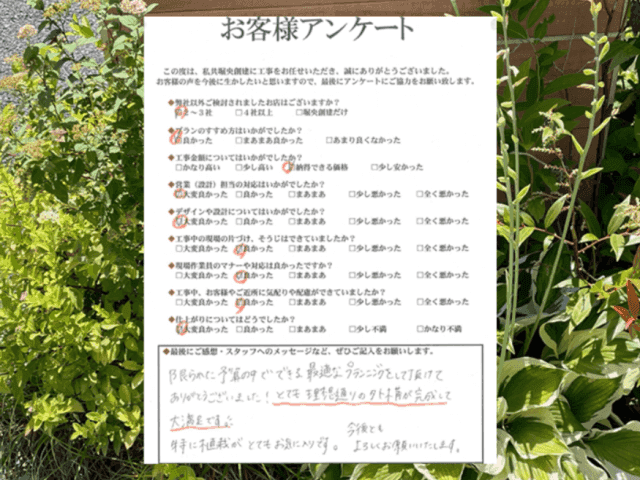 お客様アンケート
この度は、私共堀央創建に工事をお任せいただき、誠にありがとうございました。
お客様の声を今後に生かしたいと思いますので、最後にアンケートにご協力をお願い致します。
◆弊社以外ご検討されましたお店はございますか？
□2～3社 □4社以上 □堀央創建だけ
◆プランのすすめ方はいかがでしたか？
□良かった □まあまあ良かった □あまり良くなかった
◆工事金額についてはいかがでしたか？
□かなり高い □少し高い □納得できる価格 □少し安かった
◆営業（設計）担当の対応はいかがでしたか？
□大変良かった □良かった □まあまあ □少し悪かった □全く悪かった
◆デザインや設計についてはいかがでしたか？
□大変良かった □良かった □まあまあ □少し悪かった □全く悪かった
◆工事中の現場の片づけ、そうじはできていましたか？
□大変良かった □良かった □まあまあ □少し悪かった □全く悪かった
◆現場作業員のマナーや対応は良かったですか？
□大変良かった □良かった □まあまあ □少し悪かった □全く悪かった
◆工事中、お客様やご近所に気配りや配慮ができていましたか？
□大変良かった □良かった □まあまあ □少し悪かった □全く悪かった
◆仕上がりについてはどうでしたか？
□大変良かった □良かった □まあまあ □少し不満 □かなり不満
◆最後にご感想・スタッフへのメッセージなど、ぜひご記入をお願いします。
限られた予算の中でできる最適なプランニングをして頂けて
ありがとうございました！とても理想通りのタト構が完成して
大満足です。
特に植栽がとてもお気に入りです。 今後とも
よろしくお願いいたします。